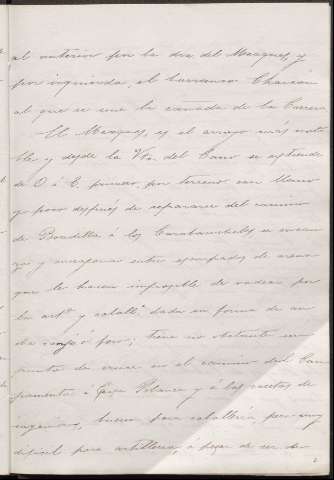 al anterior por la dra del Meaques, y
por izquierda, el barranco Charcón
al que se une la cañada de la Carrera
El Meaques, es el arroyo más nota
ble y desde la Vta. del Cano se extiende
de O. á E. primero, por terreno casi llano
y poco después de separarse del camino
de Boadilla á los Carabancheles se encau
za y encajona entre escarpados de arena
que le hacen imposible de vadear por
la arta y caballa dada su forma de an
cha zanja ó foso; tiene no obstante un
punto de cruce en el camino del Cam
pamento á Casa Blanca y á las cuestas de
ingenieros, bueno para caballería, pero muy
dificil para artillería, á pesar de ser de